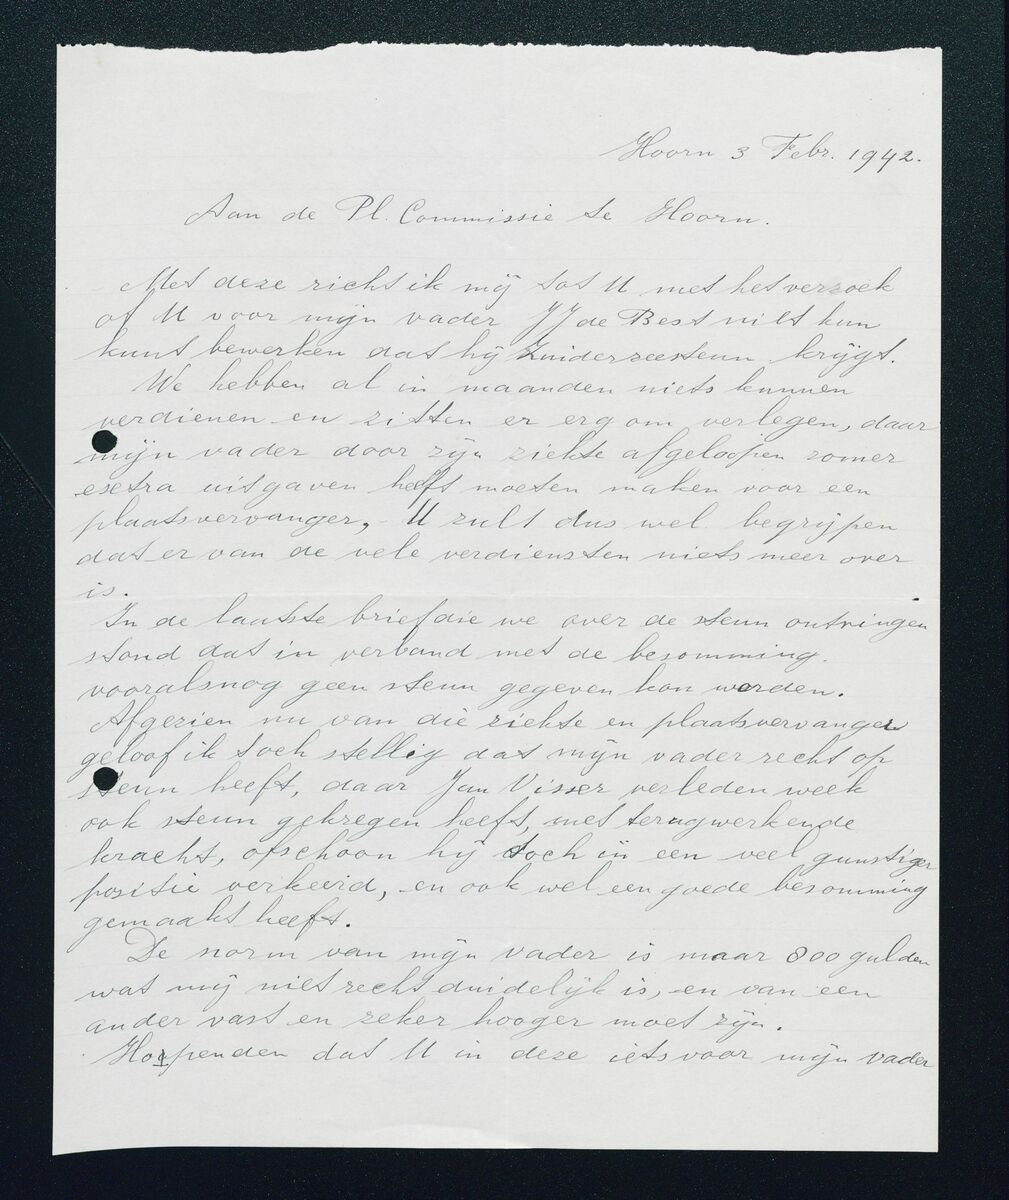 Hoorn 3 Febr. 1942.
Aan de Pl. Commissie te Hoorn.
Met deze richt ik mij tot U met het verzoek
of U voor mijn vader JJ de Best niet kun
kunt bewerken dat hij Zuiderzeesteun krijgt.
We hebben al in maanden niets kunnen
verdienen en zitten er erg om verlegen, daar
mijn vader door zijn ziekte afgeloopen zomer
extra uitgaven heeft moeten maken voor een
plaatsvervanger, - U zult dus wel begrijpen
dat er van de vele verdiensten niets meer over
is.
In de laatste brief die we over de steun ontvingen
stond dat in verband met de besomming
vooralsnog geen steun gegeven kon worden.
Afgezien nu van die ziekte en plaatsvervanger
geloof ik toch stellig dat mijn vader recht op
steun heeft, daar Jan Visser verleden week
ook steun gekregen heeft, met terugwerkende
kracht, ofschoon hij toch in een veel gunstiger
positie verkeerd, en ook wel een goede besomming
gemaakt heeft.
De norm van mijn vader is maar 800 gulden
wat mij niet recht duidelijk is, en van een
ander vast en zeker hooger moet zijn.
Hoopenden dat U in deze iets voor mijn vader